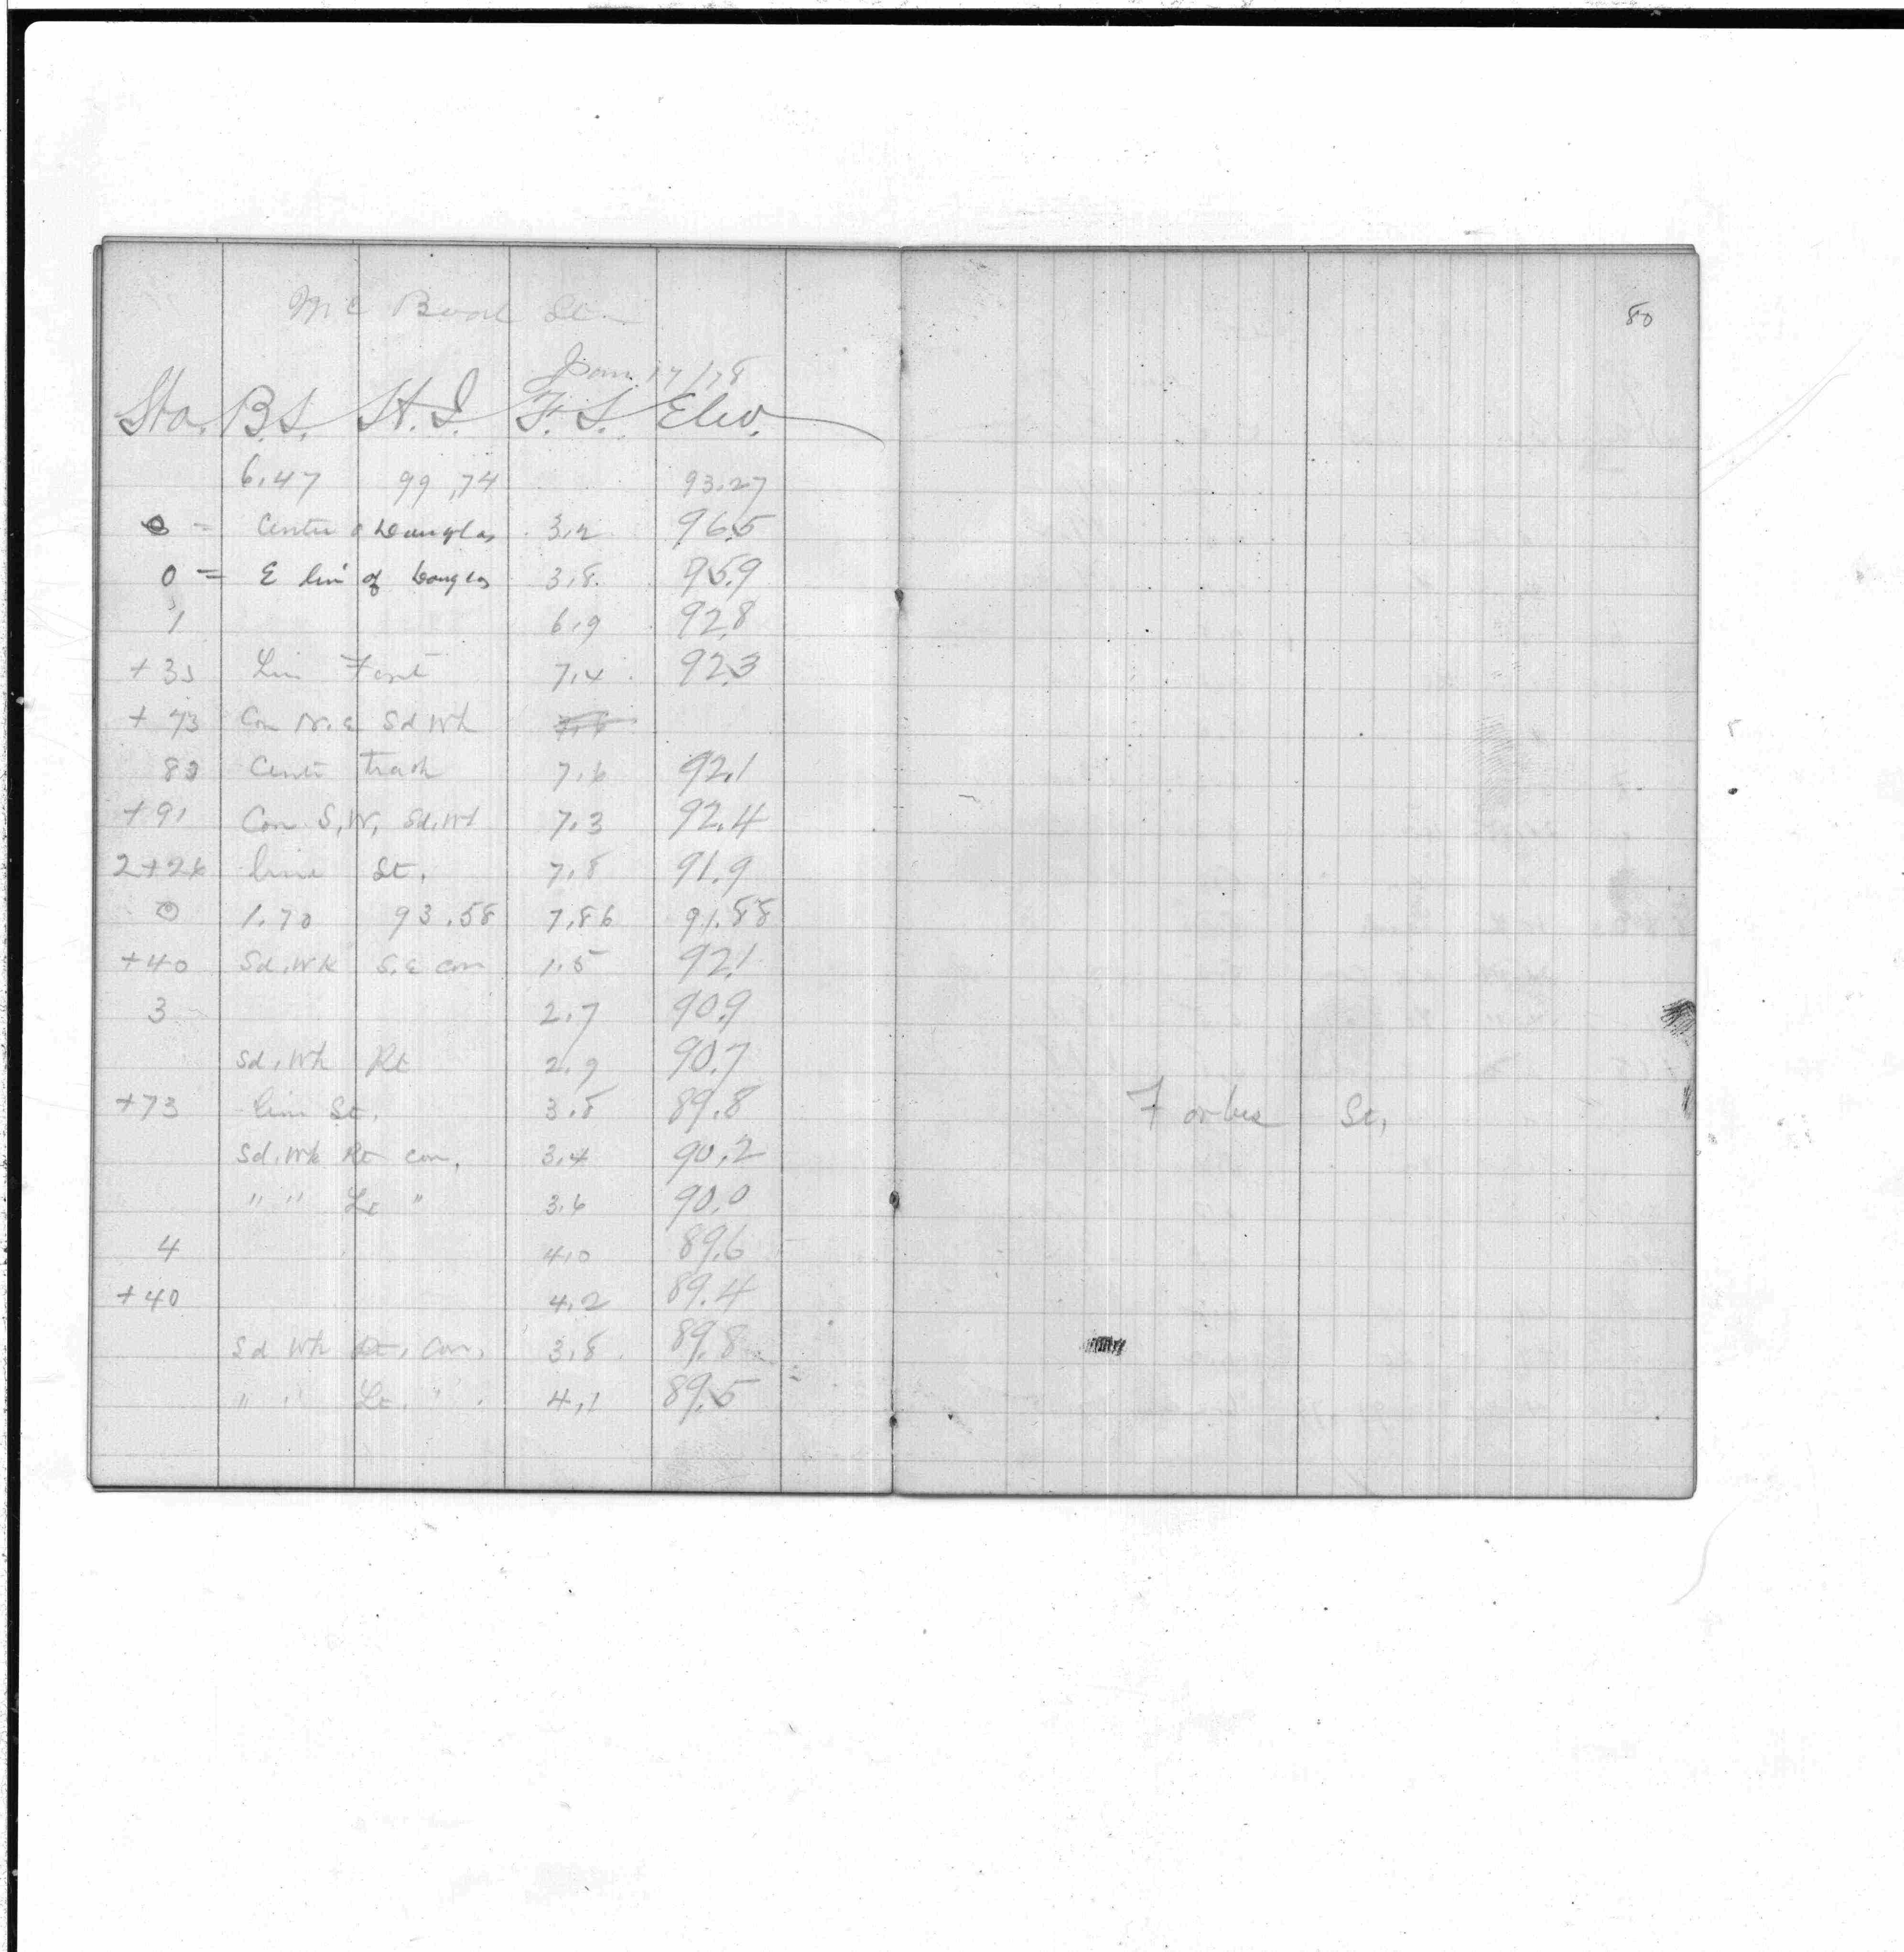 Mc
Jan. 17/78
Sta. B.S. H.I. F.S. Elev.
6.47 99.74 93.27
0 = Center Douglas 3.2 96.5
0 = E lin of Douglas 3.8 95.9
1 6.9 92.8
+35 Lin 7.4 92.3
+73 Cor N.E Sd Wk
82 Cent 7.6 92.1
+91 Cor S.W. Sd. Wk 7.3 92.4
2+26 line St. 7.8 91.9
0 1.70 93.58 7.86 91.88
+40 Sd. Wk S.E cor 1.5 92.1
3 2.7 90.9
Sd. Wk Rt 2.9 90.7
+73 line St. 3.8 89.8
Sd. Wk Rt cor. 3.4 90.2
" " Lt " 3.6 90.0
4 4.0 89.6
+40 4.2 89.4
Sd Wk Rt. Cor. 3.8 89.8
" " Lt. " 4.1 89.5
80
Forbes St.